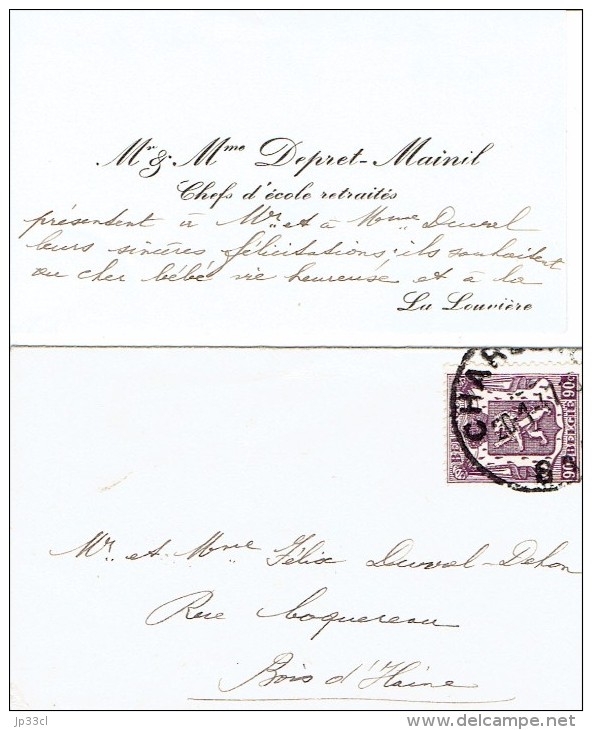 Mr & Mme Depret-Mainil
Chefs d'école retraités
présentent à Mr. et à Mme Duval
leurs sincères félicitations; ils souhaitent
au cher bébé vie heureuse et à la
La Louvière
CHARL
20-1-
90c BELGIE 90c
Mr. et Mme Félix Duval-Dehon
Rue Coquereau
Bois d'Haine
jp33cl
www.delcampe.net